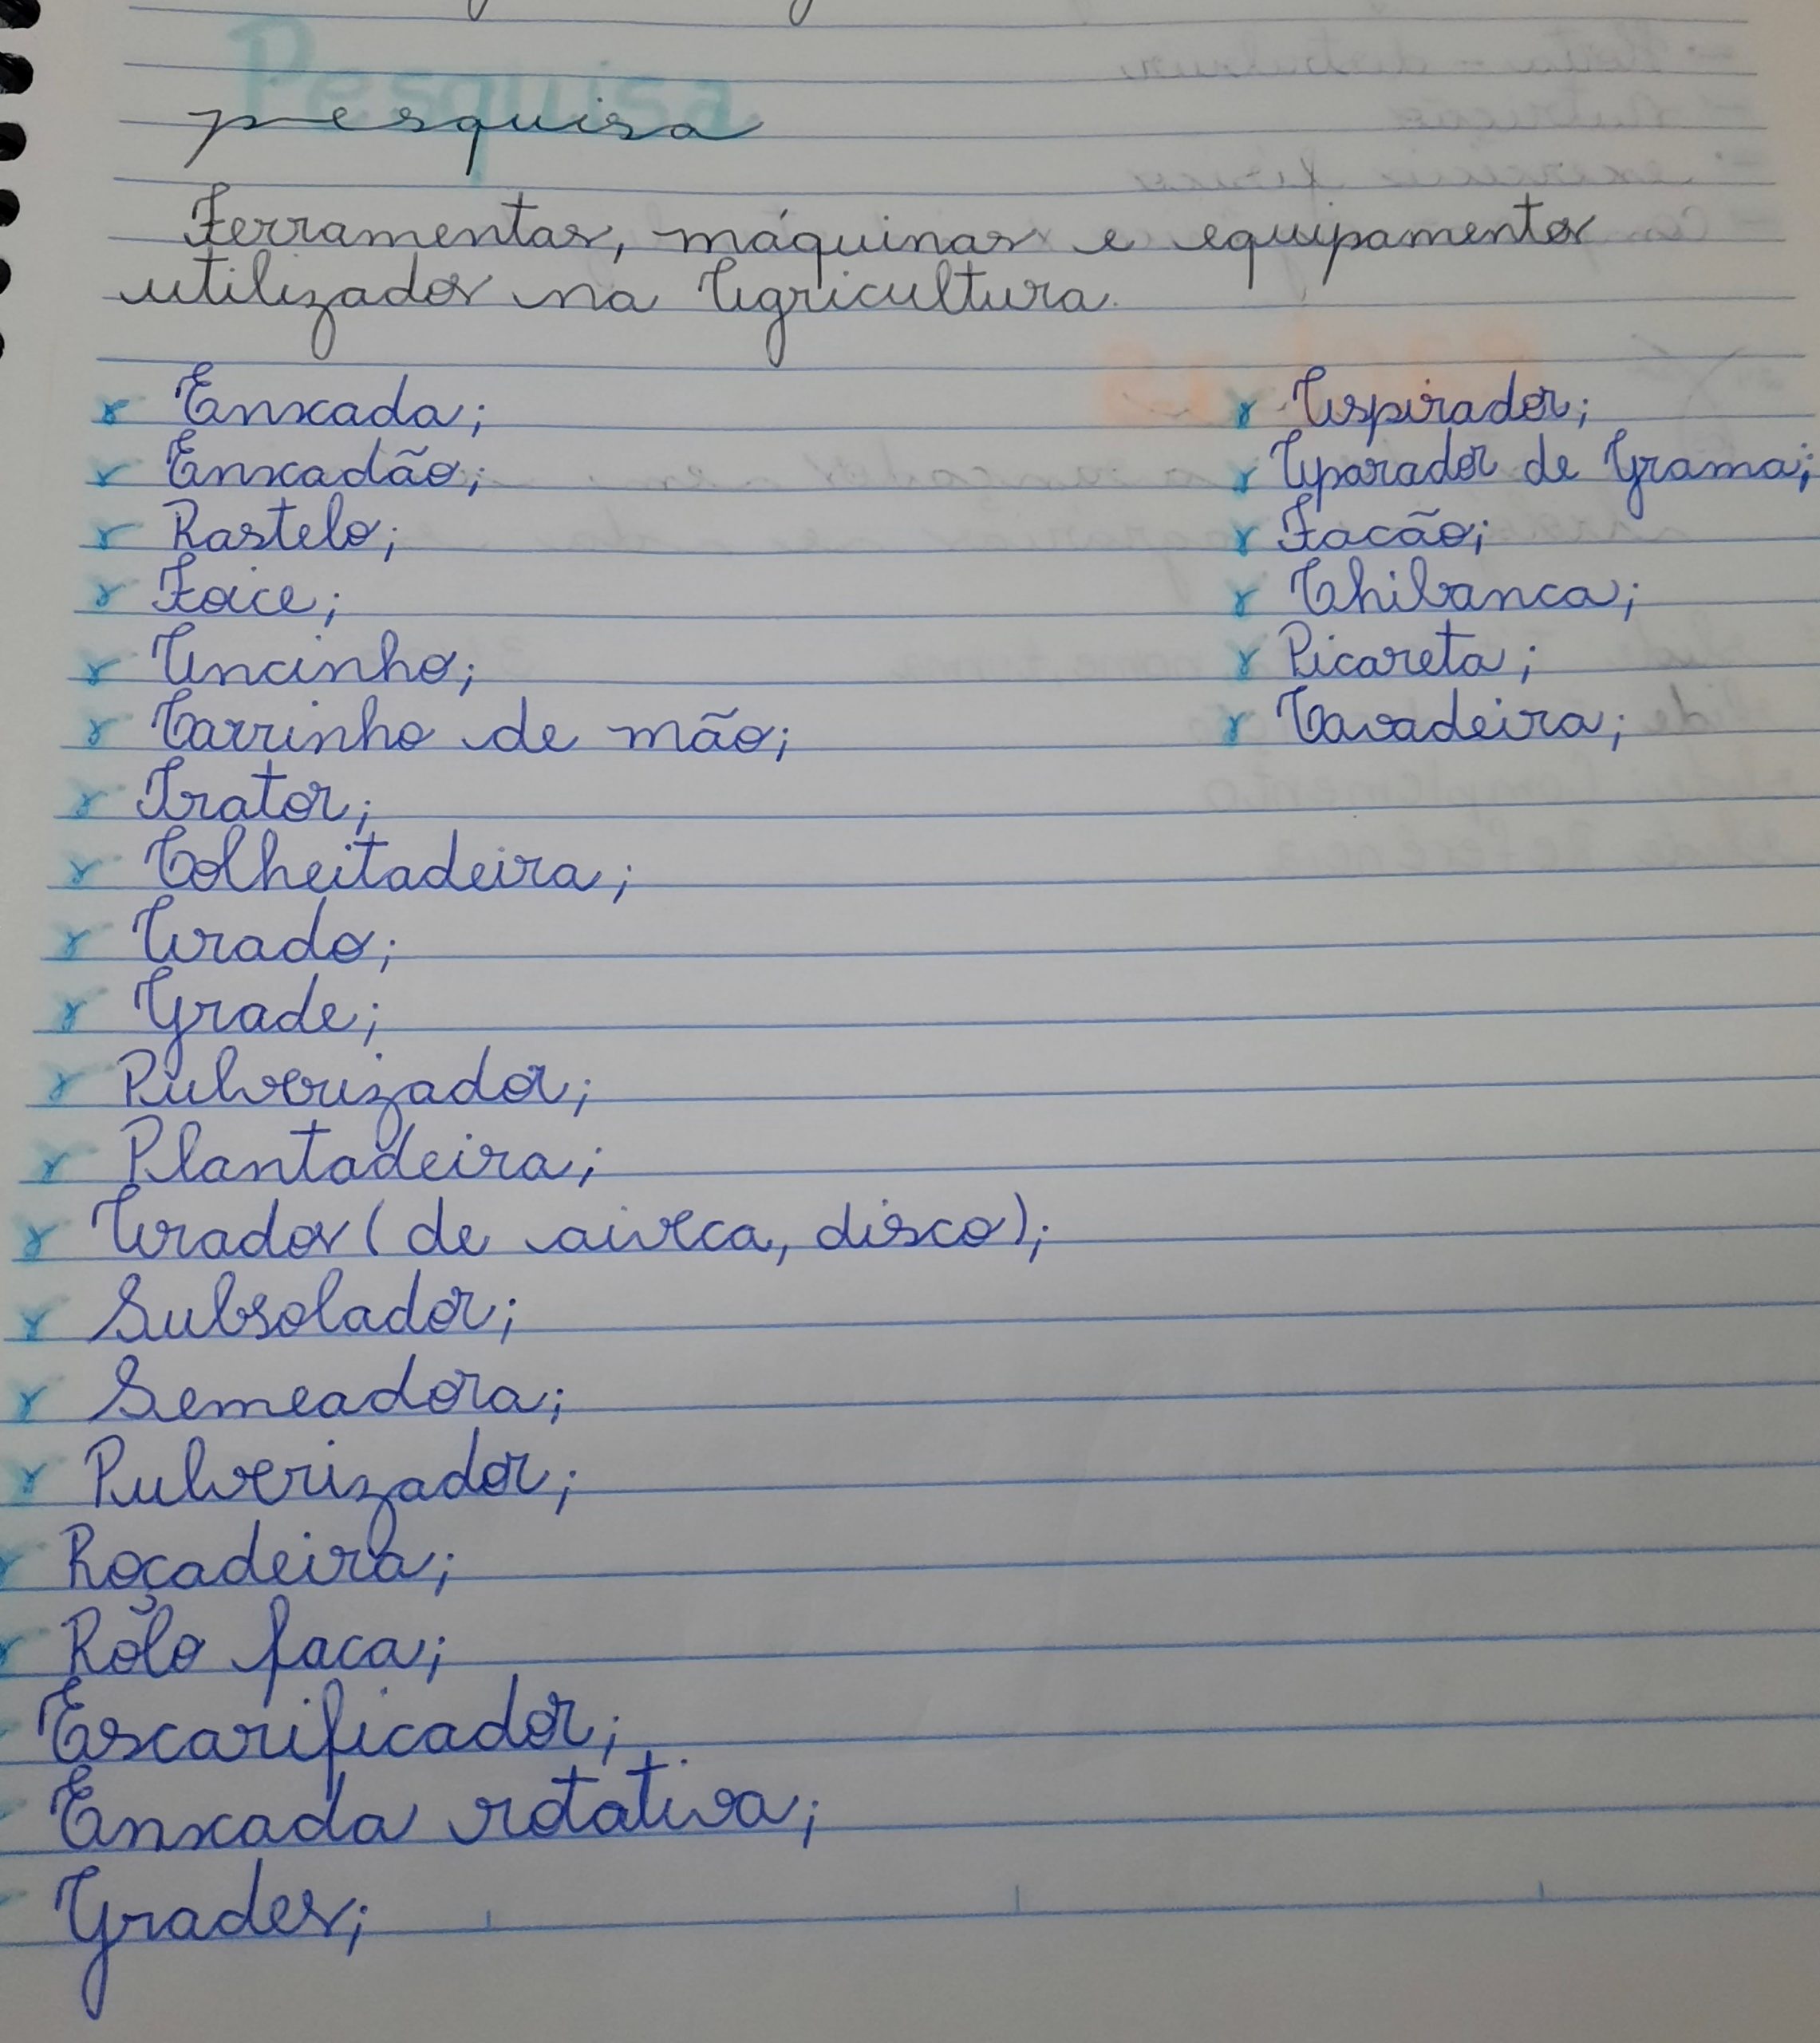 pesquisa
Ferramentas, máquinas e equipamentos
utilizados na Agricultura.
Enxada;
Enxadão;
Rastelo;
Foice;
Ancinho;
Carrinho de mão;
Trator;
Colheitadeira;
Arado;
Grade;
Pulverizador;
Plantadeira;
Arados (de aiveca, disco);
Subsolador;
Semeadora;
Pulverizador;
Roçadeira;
Rolo faca;
Escarificador;
Enxada rotativa;
Grades;
Aspirador;
Aparador de Grama;
Facão;
Chibanca;
Picareta;
Cavadeira;